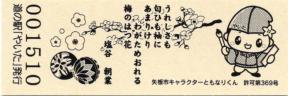 道の駅「やいた」発行
001510
うれしさも
匂ひも袖に
あまりけり
わがためおれる
梅のはつ花
塩谷 朝業
矢板市キャラクターともなりくん 許可第369号